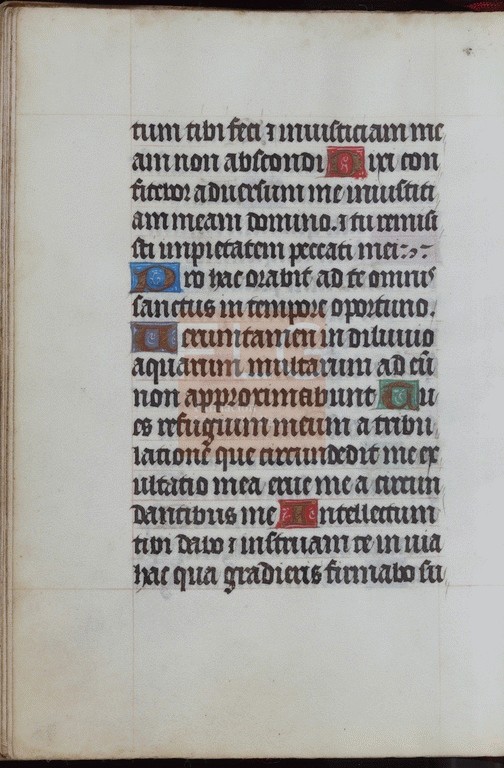 tum tibi feci ⁊ iniusticiam me
am non abscondi Dixi con
fitebor aduersum me iniustiti
am meam domino. ⁊ tu remisi
sti impietatem peccati mei
Pro hac orabit ad te omnis
sanctus in tempore oportuno.
Uerumtamen in diluuio
aquarum multarum ad eū
non approximabunt Tu
es refugium meum a tribu
latione que circumdedit me ex
ultatio mea erue me a circun
dantibus me Intellectum
tibi dabo ⁊ instruam te in uia
hac qua gradieris firmabo su